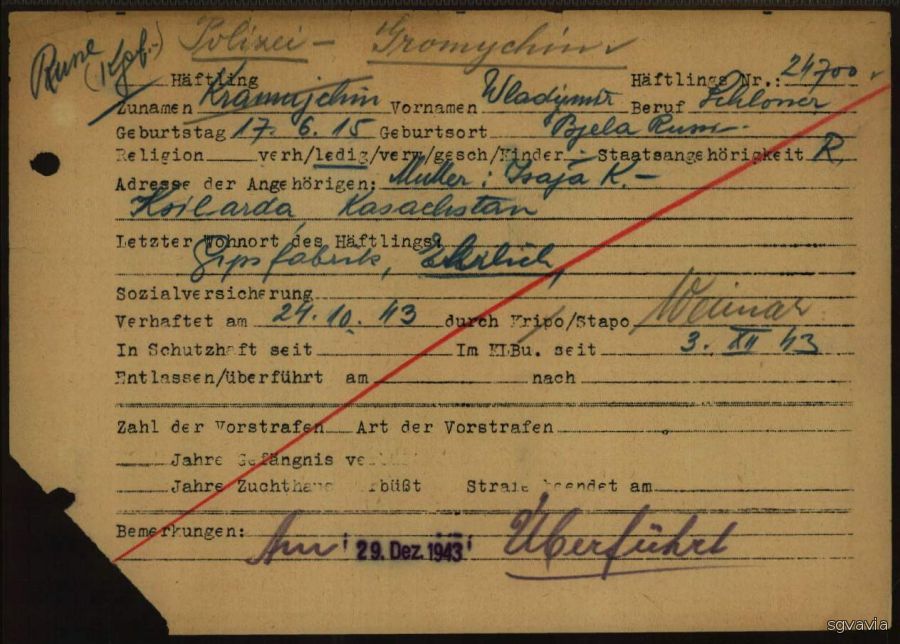 Russe Polizei - Gromychin
(Kgf.-)
Häftling Häftlings Nr.: 24700
Zunamen Kramyschin Vornamen Wladymir Beruf Schlosser
Geburtstag 17. 6. 15 Geburtsort Bjela Russ.
Religion verh/ledig/verw/gesch/Kinder - Staatsangehörigkeit R.
Adresse der Angehörigen: Mutter: Isaja K. -
Ksilarda, Kasachstan
Letzter Wohnort des Häftlings:
Gipsfabrik,
Sozialversicherung
Verhaftet am 24. 10. 43 durch Kripo/Stapo Weimar
In Schutzhaft seit Im KLBu. seit 3. XII 43
Entlassen/überführt am nach
Zahl der Vorstrafen Art der Vorstrafen
Jahre Gefängnis
Jahre Zuchthaus Strafe beendet am
Bemerkungen:
Am 29. Dez. 1943 Überführt
sgvavia